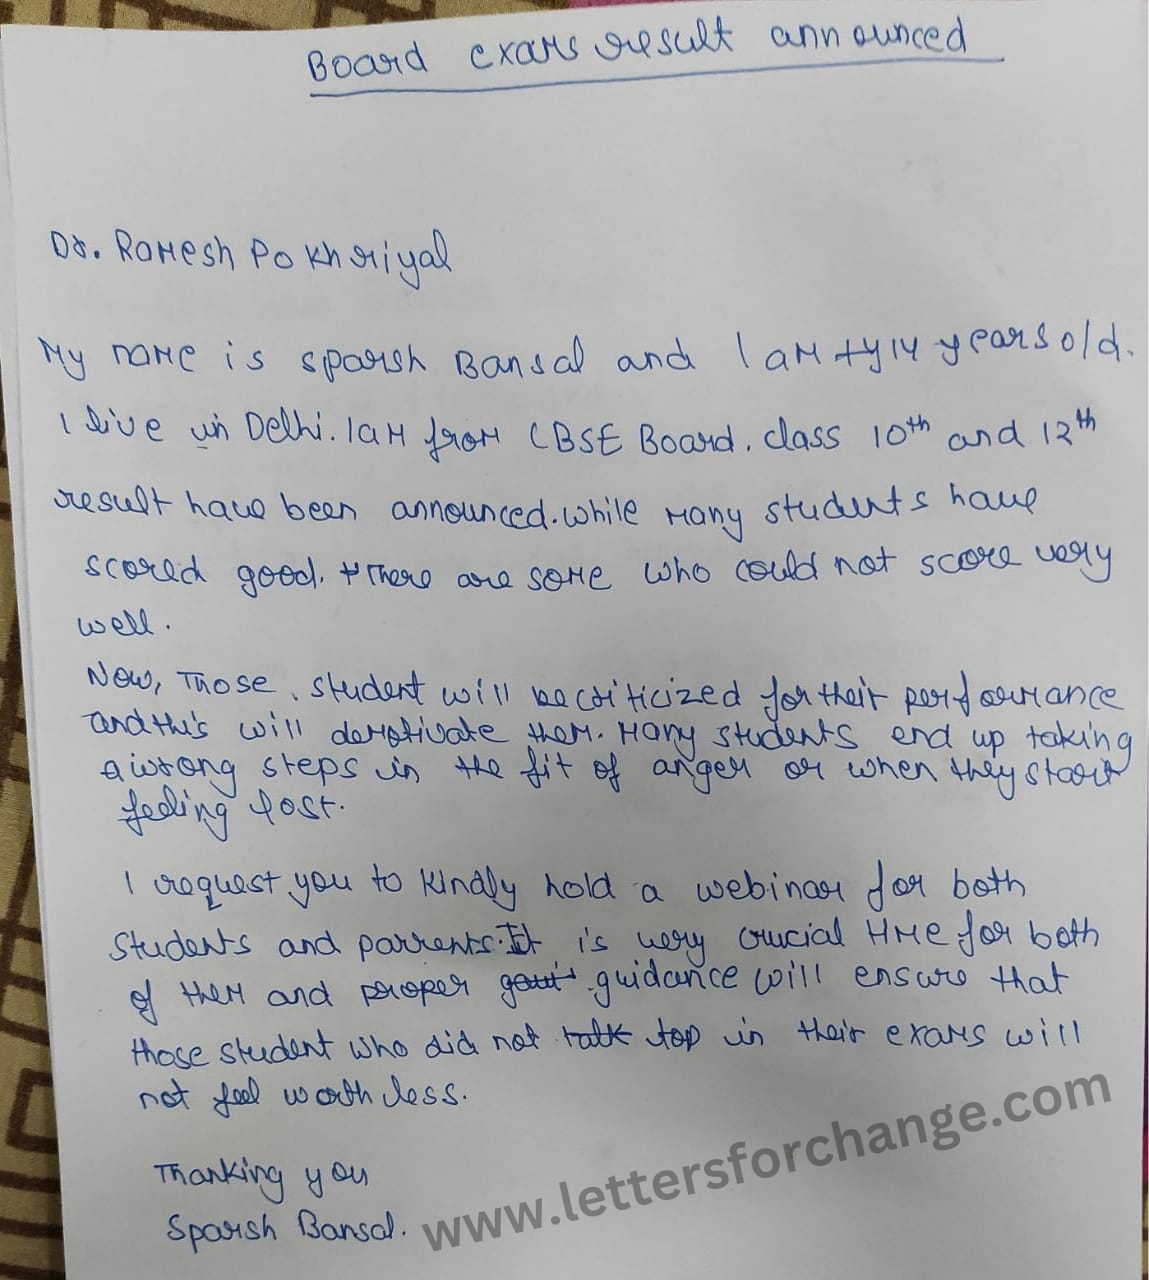 Board exams result announced
Dr. Ramesh Pokhriyal
My name is Sparsh Bansal and I am 14 years old.
I live in Delhi. I am from CBSE Board. class 10th and 12th
result have been announced. while many students have
scored good. There are some who could not score very
well.
Now, Those student will be criticized for their performance
and this will demotivate them. Many students end up taking
a wrong steps in the fit of anger or when they start
feeling lost.
I request you to kindly hold a webinar for both
students and parrents. It is very crucial time for both
of them and proper guidance will ensure that
those student who did not top in their exams will
not feel worthless.
Thanking you
Sparsh Bansal.
www.lettersforchange.com